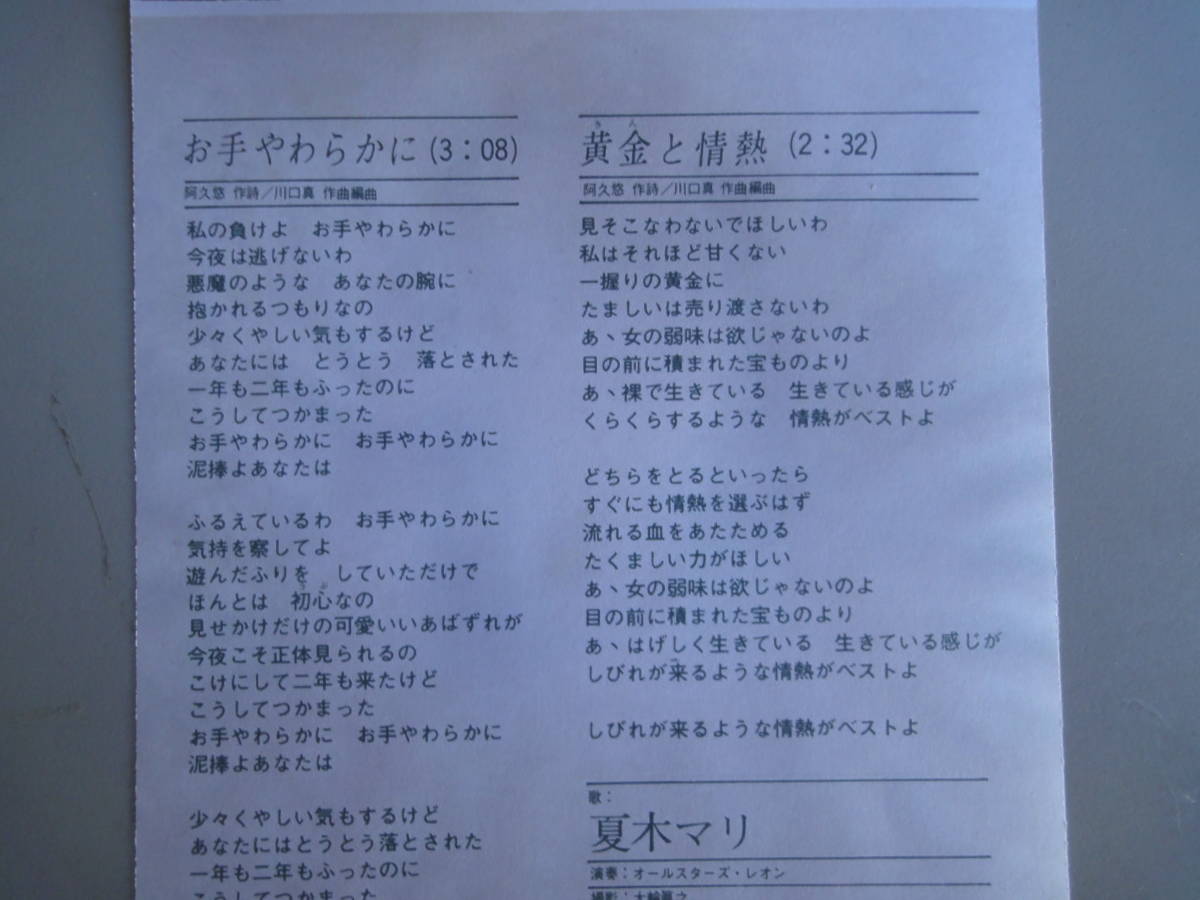 お手やわらかに (3:08)
阿久悠 作詩／川口真 作曲編曲
私の負けよ　お手やわらかに
今夜は逃げないわ
悪魔のような　あなたの腕に
抱かれるつもりなの
少々くやしい気もするけど
あなたには　とうとう　落とされた
一年も二年もふったのに
こうしてつかまった
お手やわらかに　お手やわらかに
泥捧よあなたは
ふるえているわ　お手やわらかに
気持を察してよ
遊んだふりを　していただけで
ほんとは　初心なの
見せかけだけの可愛いいあばずれが
今夜こそ正体見られるの
こけにして二年も来たけど
こうしてつかまった
お手やわらかに　お手やわらかに
泥捧よあなたは
少々くやしい気もするけど
あなたにはとうとう落とされた
一年も二年もふったのに
こうしてつかまった
きん
黄金と情熱 (2:32)
阿久悠 作詩／川口真 作曲編曲
見そこなわないでほしいわ
私はそれほど甘くない
一握りの黄金に
たましいは売り渡さないわ
あヽ女の弱味は欲じゃないのよ
目の前に積まれた宝ものより
あヽ裸で生きている　生きている感じが
くらくらするような　情熱がベストよ
どちらをとるといったら
すぐにも情熱を選ぶはず
流れる血をあたためる
たくましい力がほしい
あヽ女の弱味は欲じゃないのよ
目の前に積まれた宝ものより
あヽはげしく生きている　生きている感じが
しびれが来るような情熱がベストよ
しびれが来るような情熱がベストよ
歌：
夏木マリ
演奏：オールスターズ・レオン